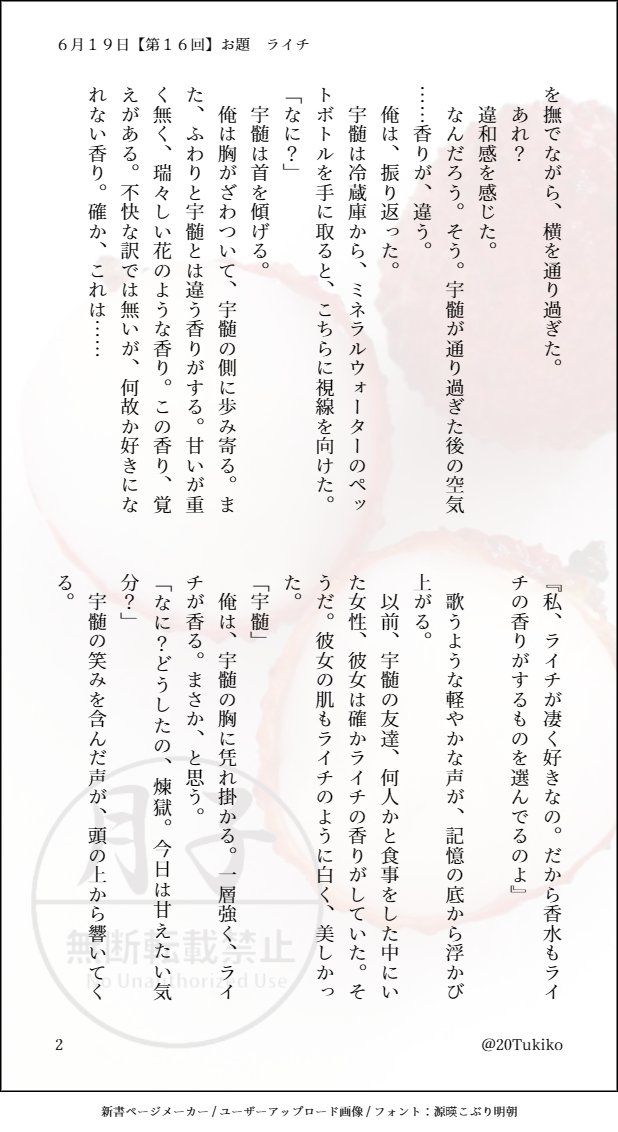 ６月１９日【第１６回】お題　ライチ
を撫でながら、横を通り過ぎた。
　あれ？
　違和感を感じた。
　なんだろう。そう。宇髄が通り過ぎた後の空気
……香りが、違う。
　俺は、振り返った。
　宇髄は冷蔵庫から、ミネラルウォーターのペッ
トボトルを手に取ると、こちらに視線を向けた。
「なに？」
　宇髄は首を傾げる。
　俺は胸がざわついて、宇髄の側に歩み寄る。ま
た、ふわりと宇髄とは違う香りがする。甘いが重
く無く、瑞々しい花のような香り。この香り、覚
えがある。不快な訳では無いが、何故か好きにな
れない香り。確か、これは……
『私、ライチが凄く好きなの。だから香水もライ
チの香りがするものを選んでるのよ』
　歌うような軽やかな声が、記憶の底から浮かび
上がる。
　以前、宇髄の友達、何人かと食事をした中にい
た女性、彼女は確かライチの香りがしていた。そ
うだ。彼女の肌もライチのように白く、美しかっ
た。
「宇髄」
　俺は、宇髄の胸に凭れ掛かる。一層強く、ライ
チが香る。まさか、と思う。
「なに？どうしたの、煉獄。今日は甘えたい気
分？」
　宇髄の笑みを含んだ声が、頭の上から響いてく
る。
月子
無断転載禁止
No Unauthorized Use
2
@20Tukiko
新書ページメーカー / ユーザーアップロード画像 / フォント：源暎こぶり明朝